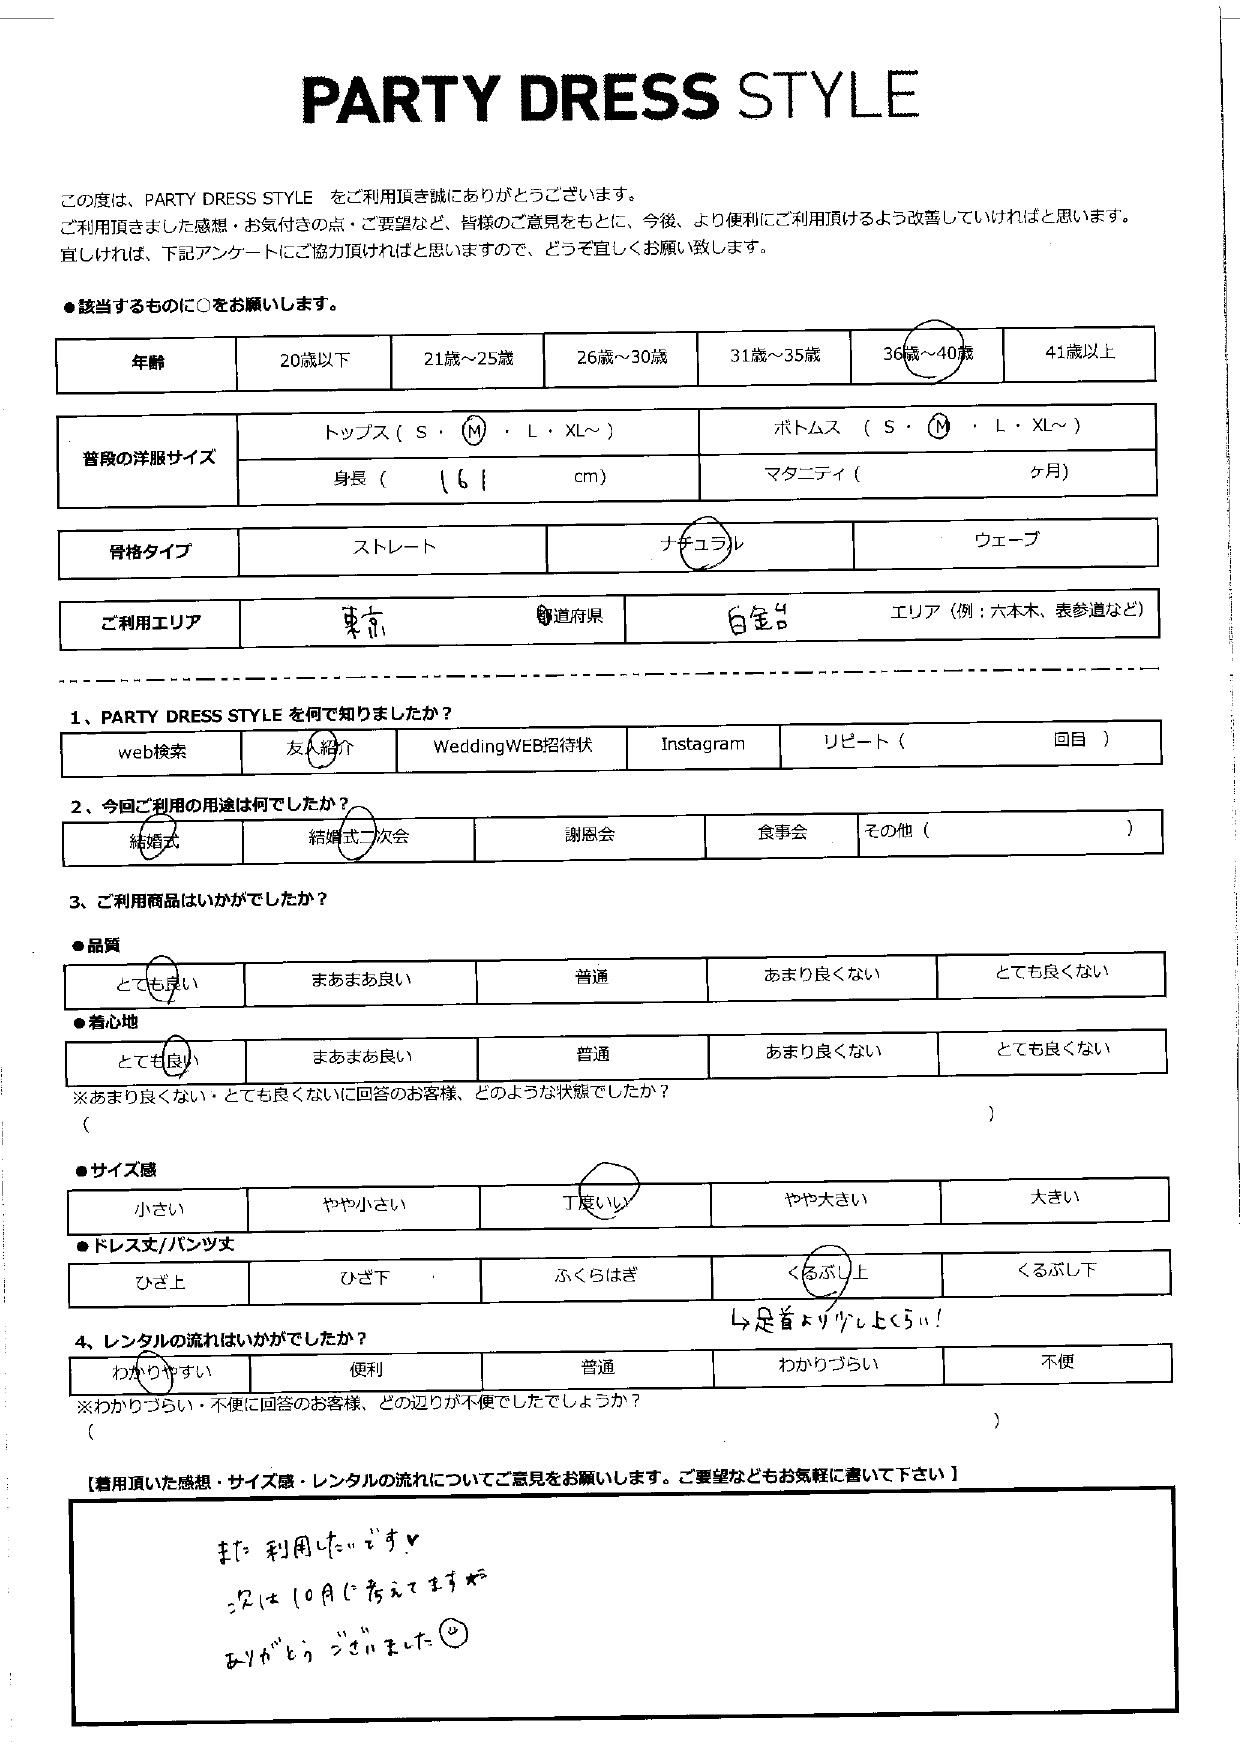 PARTY DRESS STYLE
この度は、PARTY DRESS STYLE をご利用頂き誠にありがとうございます。
ご利用頂きました感想・お気付きの点・ご要望など、皆様のご意見をもとに、今後、より便利にご利用頂けるよう改善していければと思います。
宜しければ、下記アンケートにご協力頂ければと思いますので、どうぞ宜しくお願い致します。
●該当するものに○をお願いします。
年齢 20歳以下 21歳～25歳 26歳～30歳 31歳～35歳 36歳～40歳 41歳以上
普段の洋服サイズ
トップス ( S ・ M ・ L ・ XL～ ) ボトムス ( S ・ M ・ L ・ XL～ )
身長 ( 161 cm) マタニティ ( ヶ月)
骨格タイプ ストレート ナチュラル ウェーブ
ご利用エリア 東京 都道府県 白金台 エリア（例：六本木、表参道など）
1、PARTY DRESS STYLE を何で知りましたか？
web検索 友人紹介 WeddingWEB招待状 Instagram リピート ( 回目 )
2、今回ご利用の用途は何でしたか？
結婚式 結婚式二次会 謝恩会 食事会 その他 ( )
3、ご利用商品はいかがでしたか？
●品質
とても良い まあまあ良い 普通 あまり良くない とても良くない
●着心地
とても良い まあまあ良い 普通 あまり良くない とても良くない
※あまり良くない・とても良くないに回答のお客様、どのような状態でしたか？
( )
●サイズ感
小さい やや小さい 丁度いい やや大きい 大きい
●ドレス丈/パンツ丈
ひざ上 ひざ下 ふくらはぎ くるぶし上 くるぶし下
↳足首より少し上くらい！
4、レンタルの流れはいかがでしたか？
わかりやすい 便利 普通 わかりづらい 不便
※わかりづらい・不便に回答のお客様、どの辺りが不便でしたでしょうか？
( )
【着用頂いた感想・サイズ感・レンタルの流れについてご意見をお願いします。ご要望などもお気軽に書いて下さい】
また利用したいです♥
次は10月に考えてます☆
ありがとうございました☺